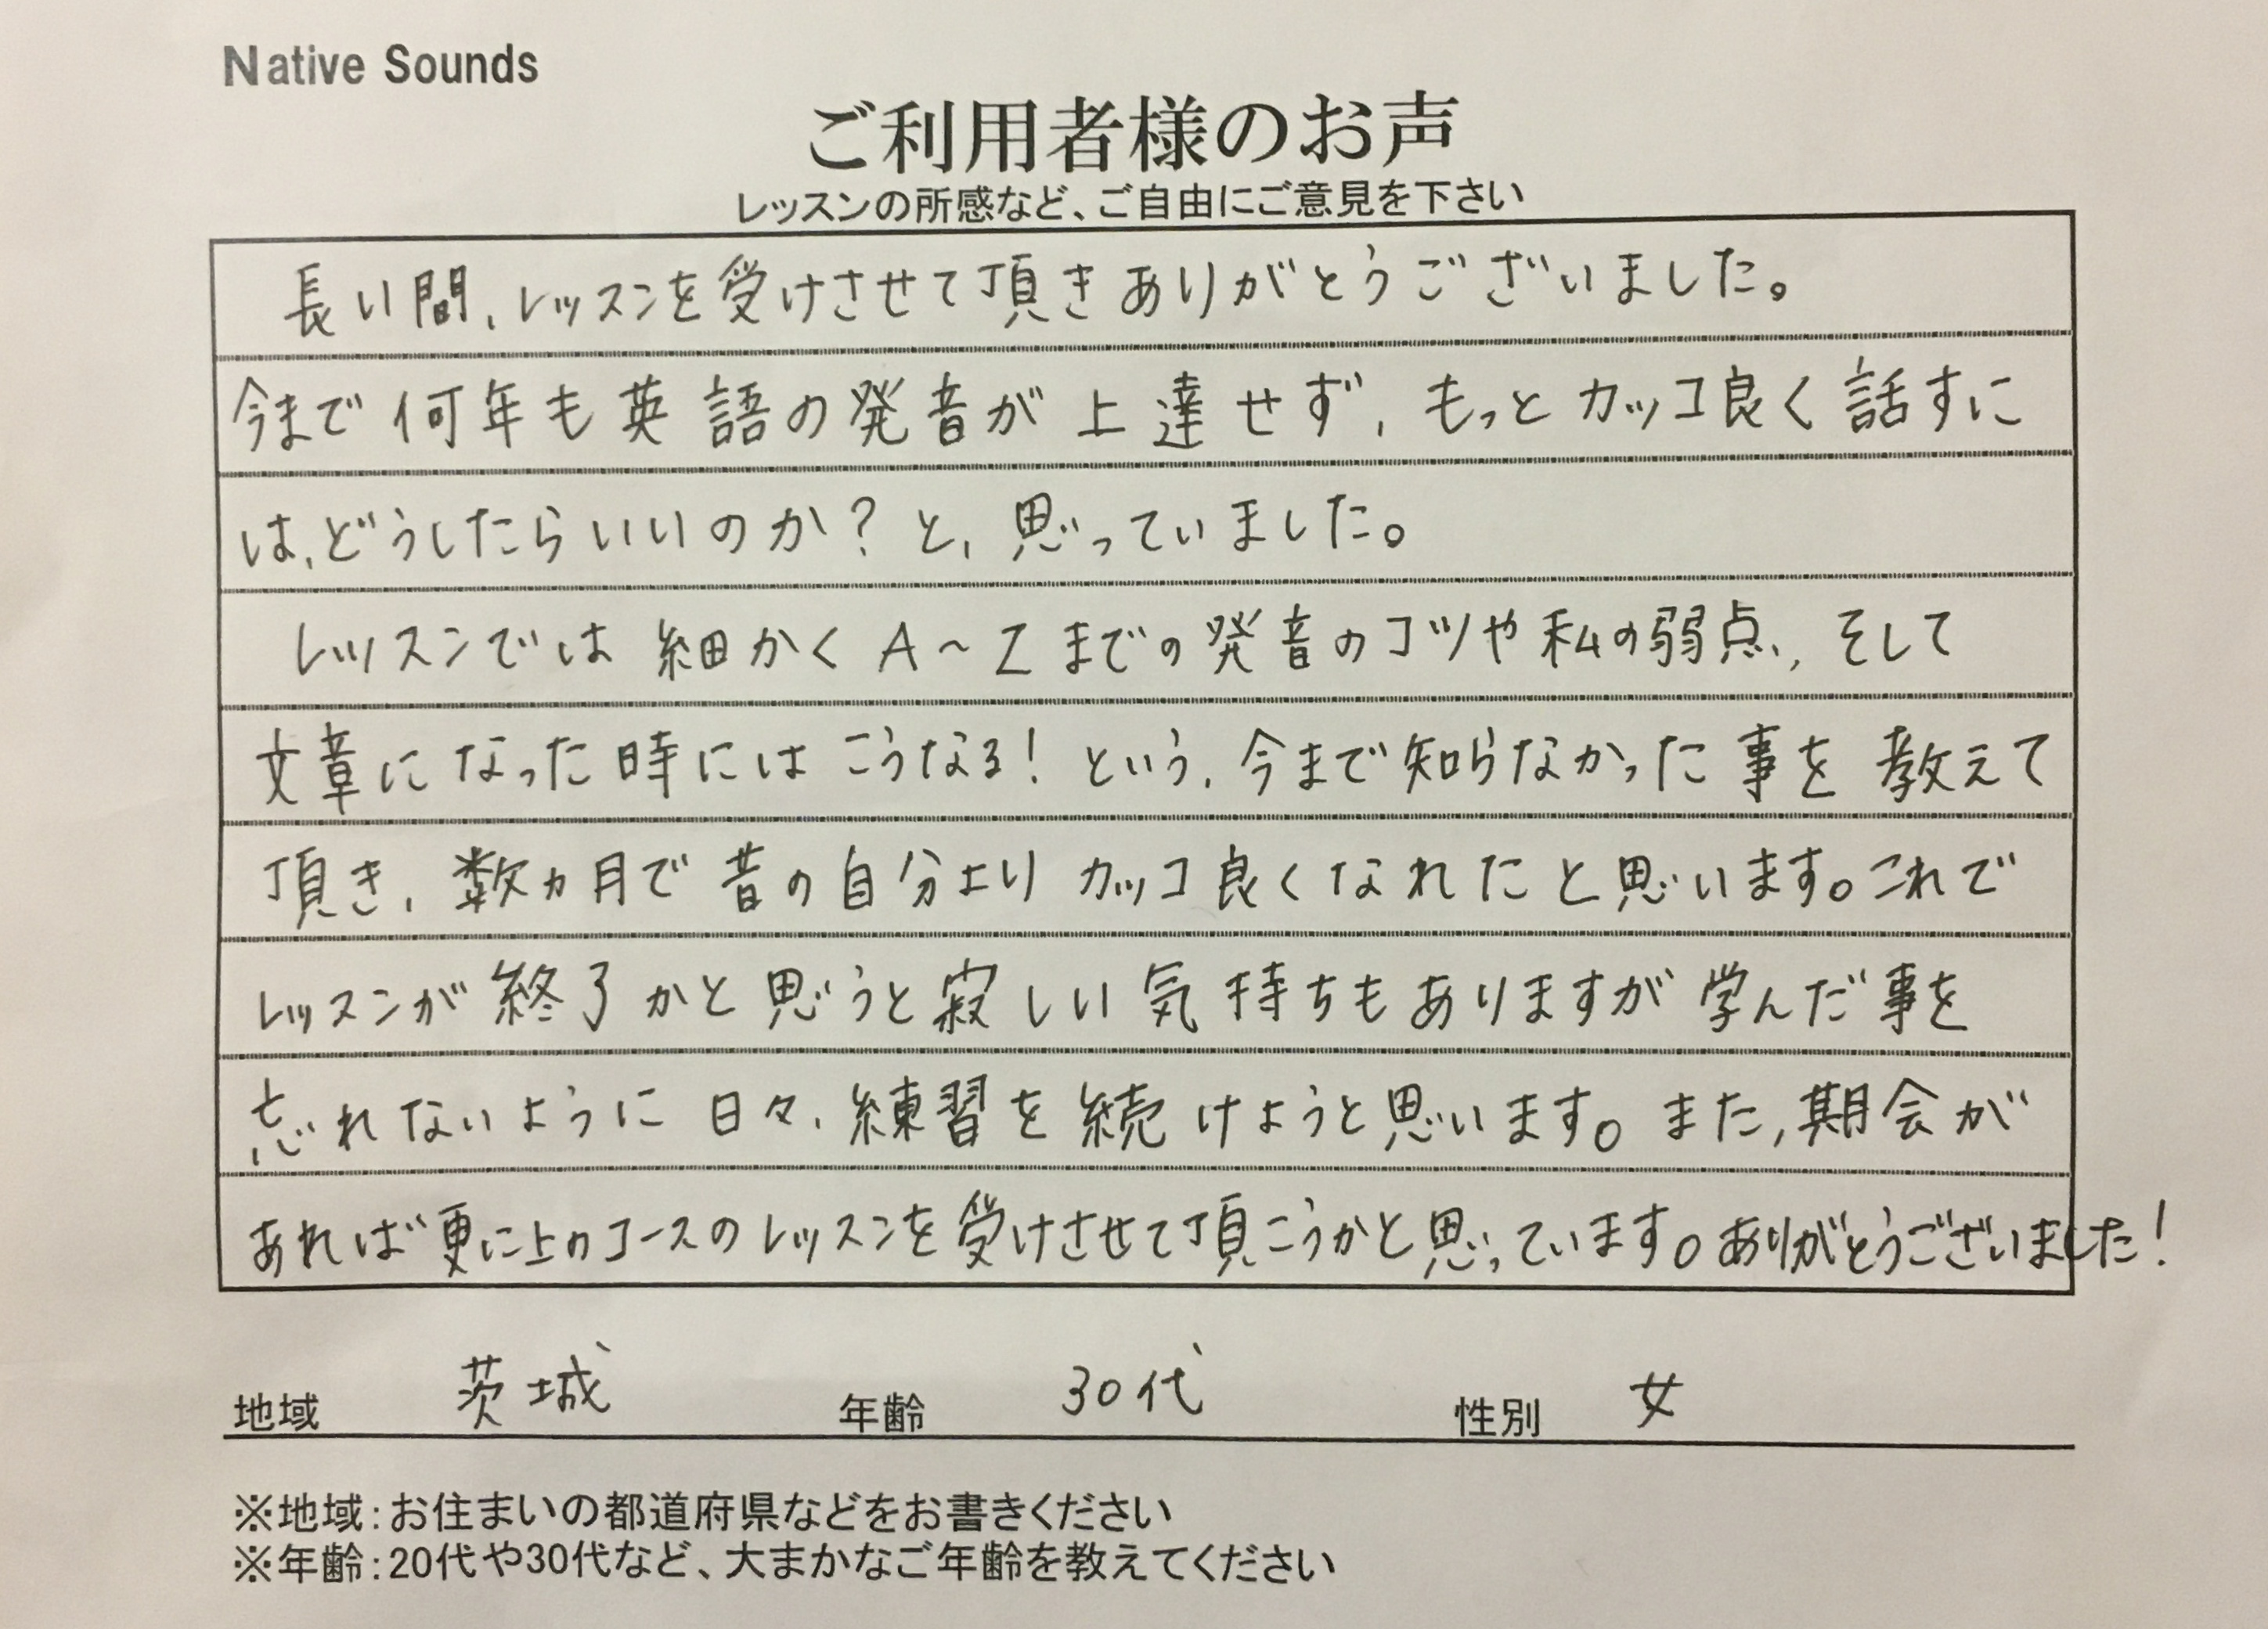 Native Sounds
ご利用者様のお声
レッスンの所感など、ご自由にご意見を下さい
長い間、レッスンを受けさせて頂きありがとうございました。
今まで何年も英語の発音が上達せず、もっとカッコ良く話すに
は、どうしたらいいのか？と、思っていました。
レッスンでは細かくA～Zまでの発音のコツや私の弱点、そして
文章になった時にはこうなる！という、今まで知らなかった事を教えて
頂き、数ヵ月で昔の自分よりカッコ良くなれたと思います。これで
レッスンが終了かと思うと寂しい気持ちもありますが学んだ事を
忘れないように日々、練習を続けようと思います。また、期会が
あれば更に上のコースのレッスンを受けさせて頂こうかと思っています。ありがとうございました！
地域 茨城 年齢 30代 性別 女
※地域：お住まいの都道府県などをお書きください
※年齢：20代や30代など、大まかなご年齢を教えてください